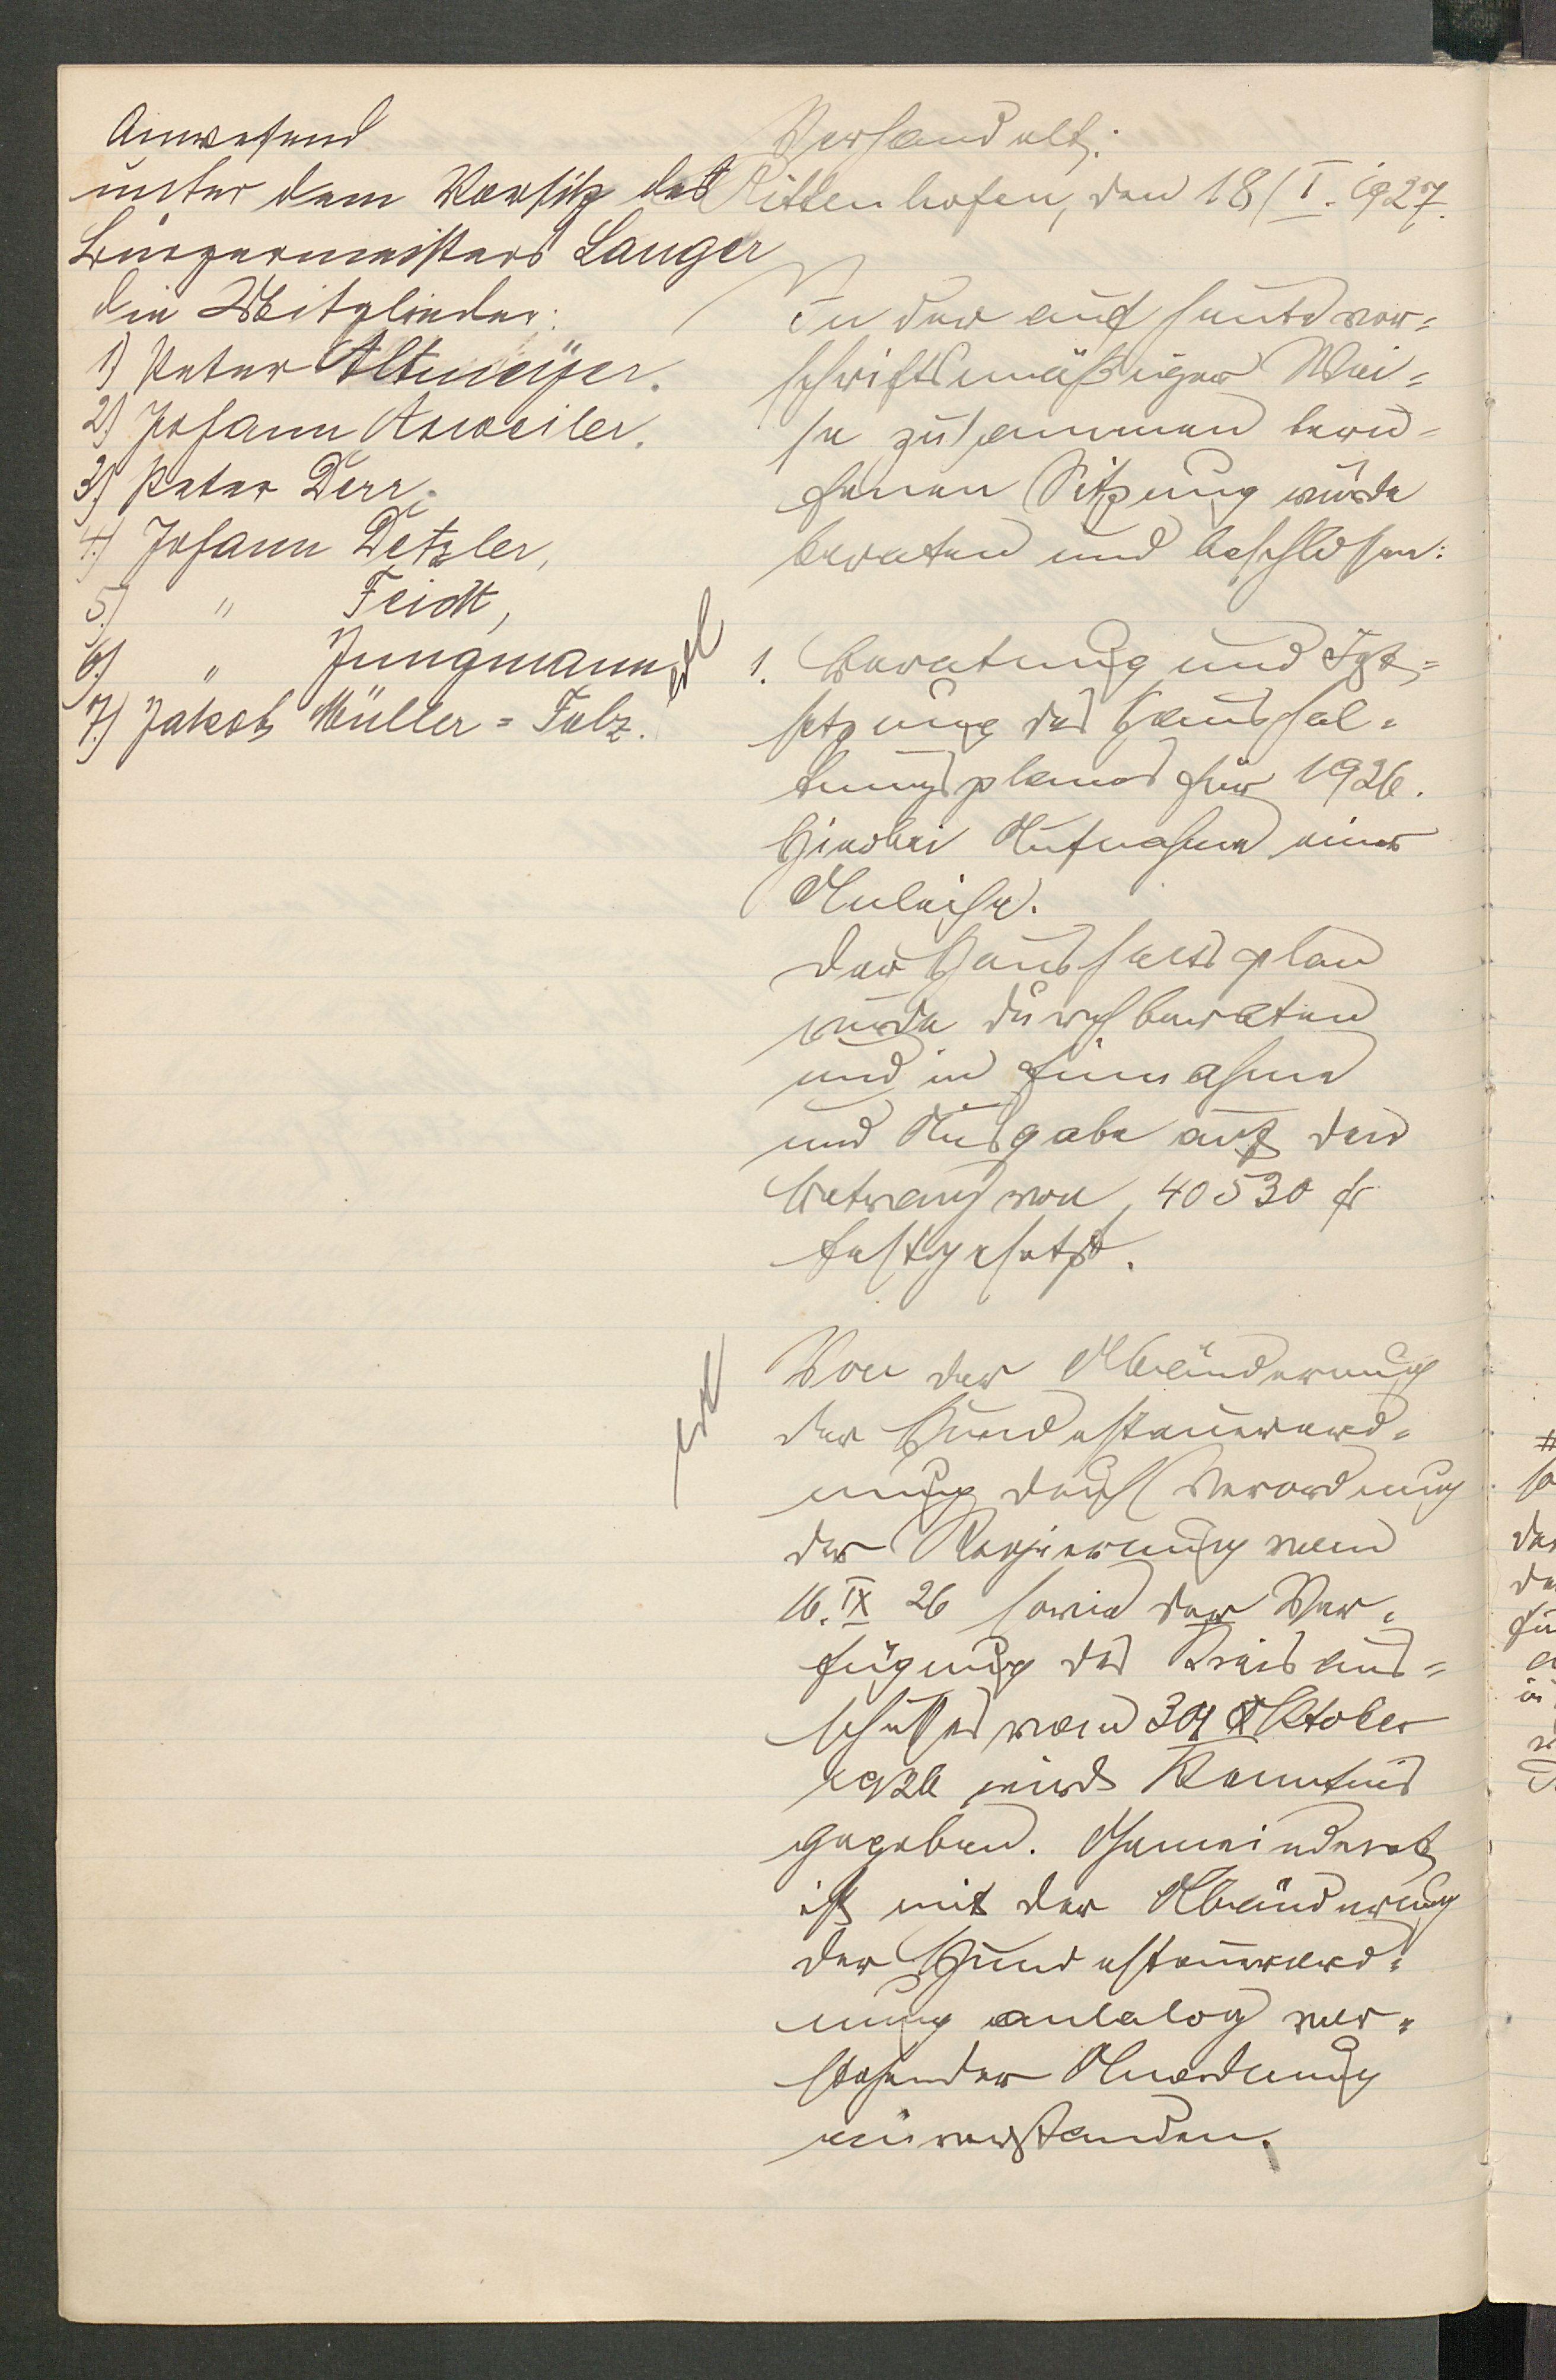 Anwesend
unter dem Vorsitz des
Bürgermeisters Langer
die Mitglieder:
1) Peter Altmeÿer.
2) Johann Asweiler.
3) Peter Dörr,
4.) Johann Detzler,
5.) " Feidt,
6.) " Jungmann
7.) Jakob Müller = Folz.
Verhandelt:
Rittenhofen, den 18/I. 1927.
In der auf heute vor=
schriftsmäßiger Wei=
se zusammen beru=
fenen Sitzung wurde
beraten und beschlossen:
erl
1. Beratung und Fest=
setzung des Haushal=
tungsplanes für 1926.
Hierbei Aufnahme einer
Anleihe.
Der Haushaltsplan
wurde durchberaten
und in Einnahme
und Ausgabe auf den
Betrag von 40530 fr
festgesetzt.
erl
Von der Abänderung
der Hundesteuerord=
nung durch Verordnung
der Regierung vom
16. IX 26 sowie der Ver=
fügung des Kreisaus=
schußes vom Oktober
1926 wird Kenntnis
gegeben. Gemeinderat
ist mit der Abänderung
der Hundesteuerord=
nung analog vor=
stehender Anordnung
einverstanden.